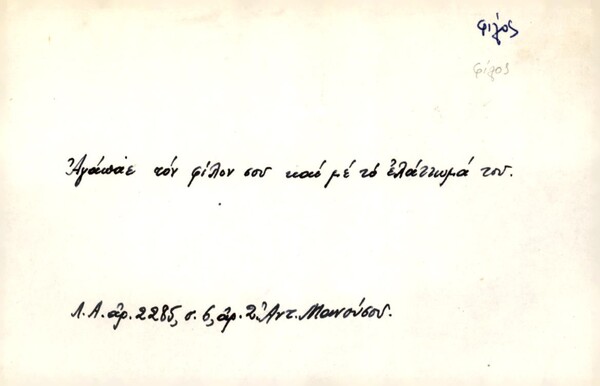 φίλος
φίλος
Ἀγάπαε τόν φίλον σου καί μέ τό ἐλάττωμά του.
Λ.Α. ἀρ. 2285, σ. 6, ἀρ. 2, Ἀντ. Μανούσου.